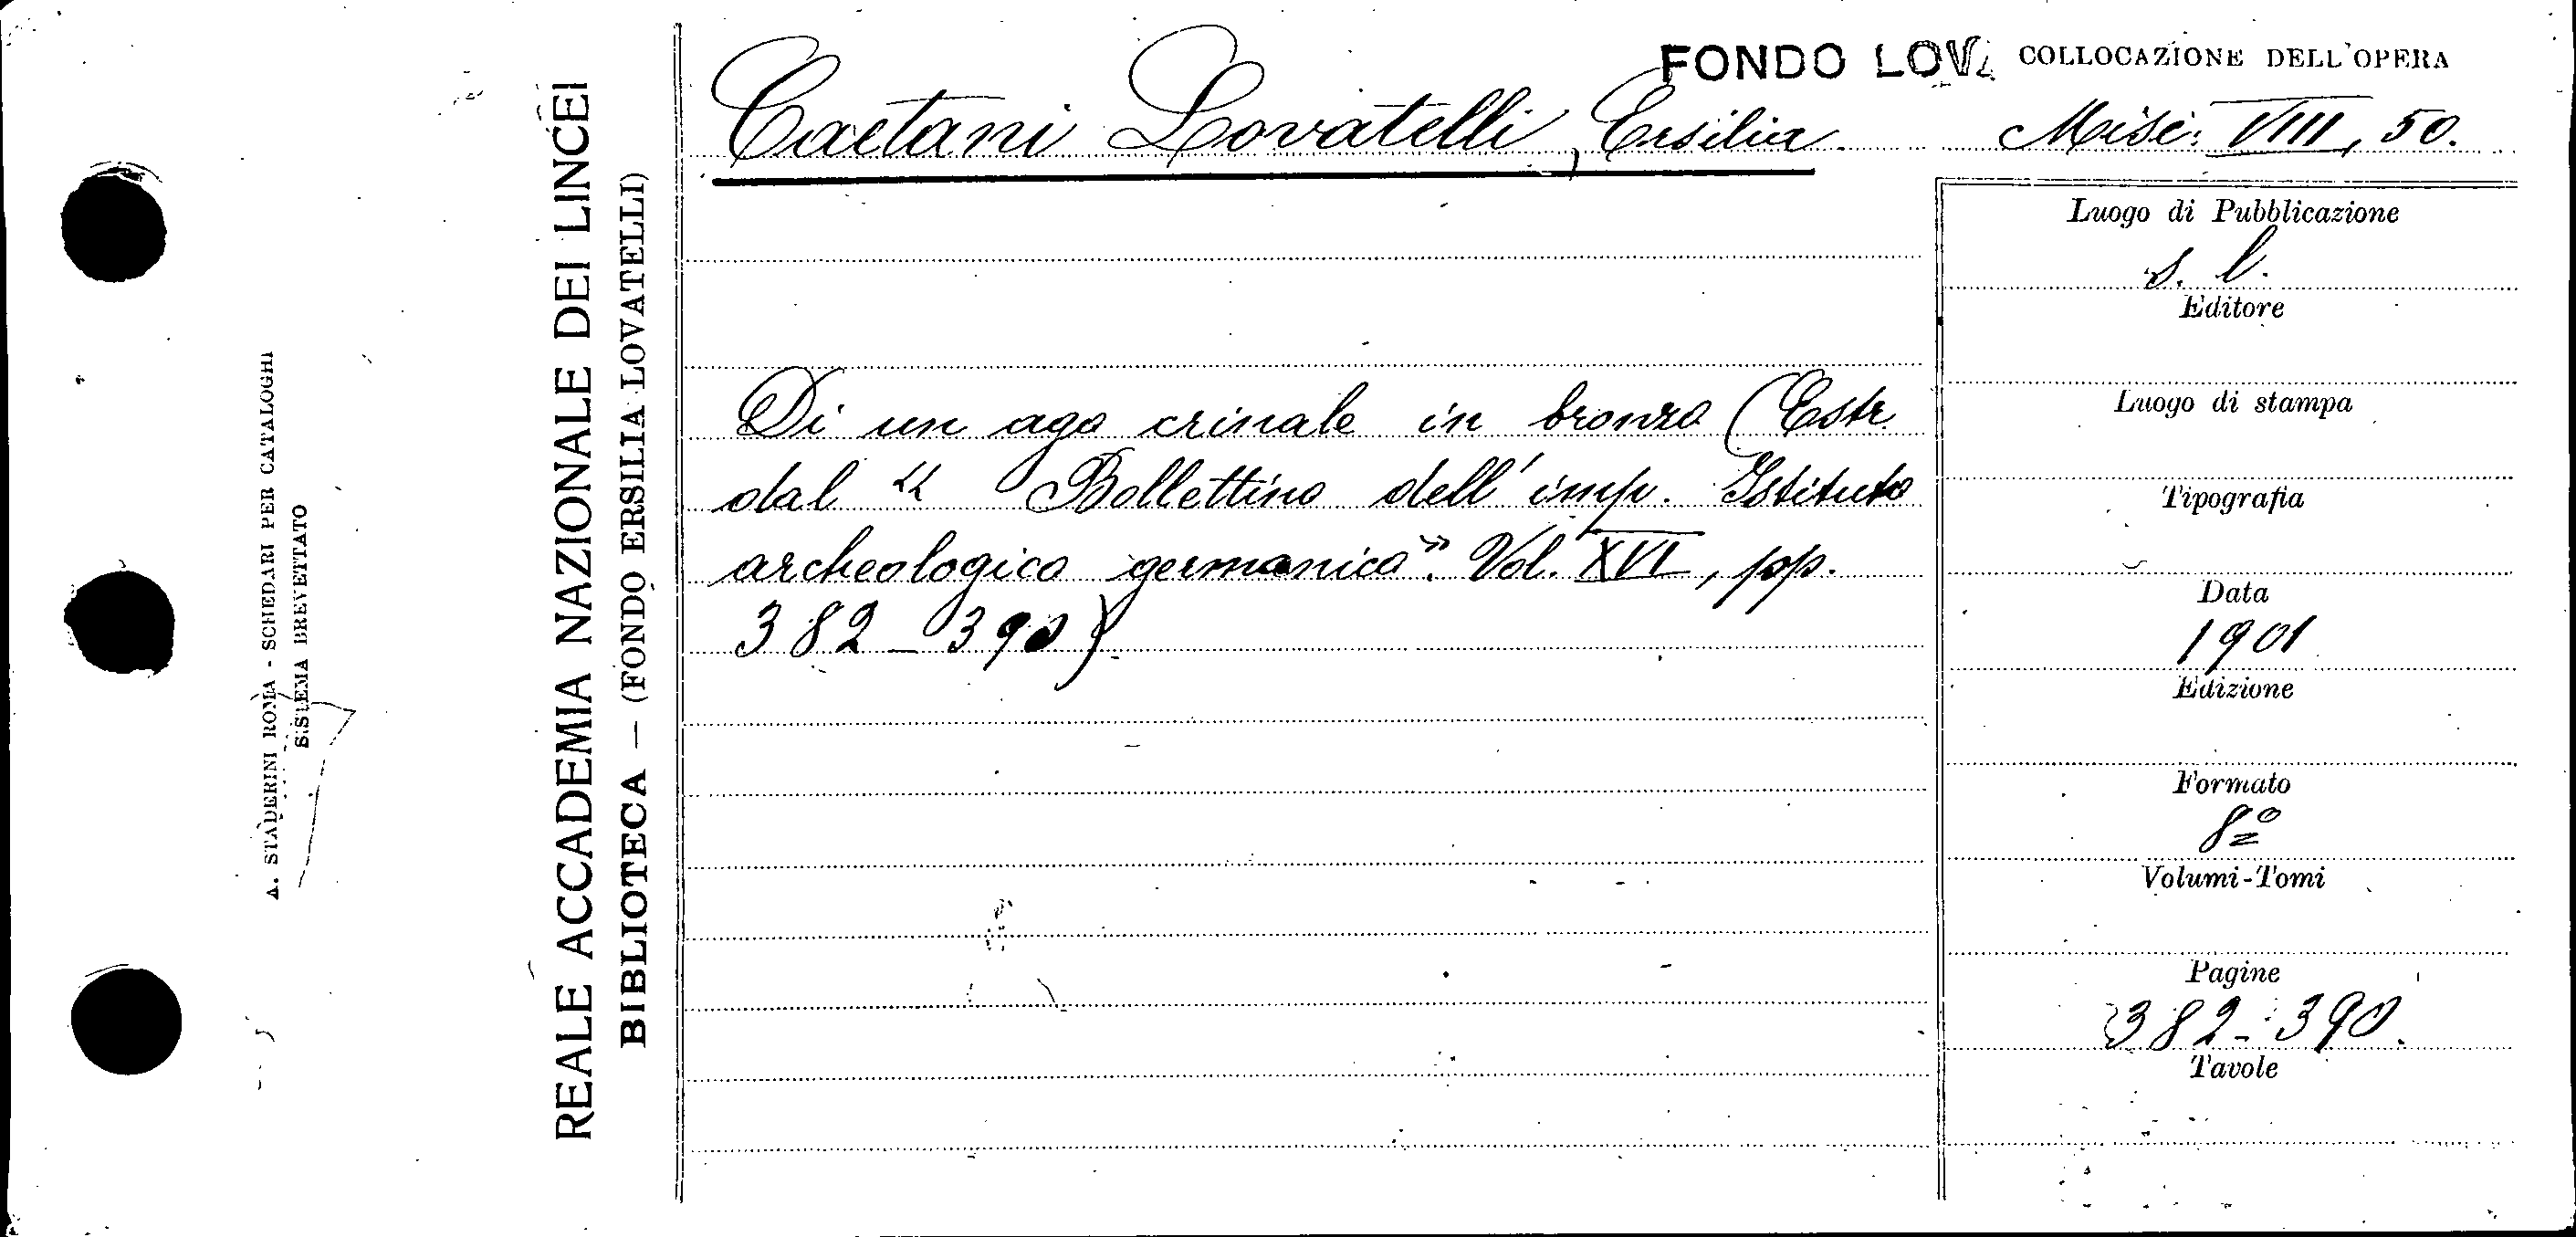 A. STADERINI ROMA - SCHEDARI PER CATALOGHI
SISTEMA BREVETTATO
REALE ACCADEMIA NAZIONALE DEI LINCEI
BIBLIOTECA — (FONDO ERSILIA LOVATELLI)
FONDO LOVA
COLLOCAZIONE DELL'OPERA
Caetani Lovatelli, Ersilia
Misc. VIII, 50.
Di un ago crinale in bronzo (Estr.
dal « Bollettino dell'imp. Istituto
archeologico germanico». Vol. XVI, pp.
382-390)
Luogo di Pubblicazione
s. l.
Editore
Luogo di stampa
Tipografia
Data
1901
Edizione
Formato
8º
Volumi-Tomi
Pagine
382-390.
Tavole